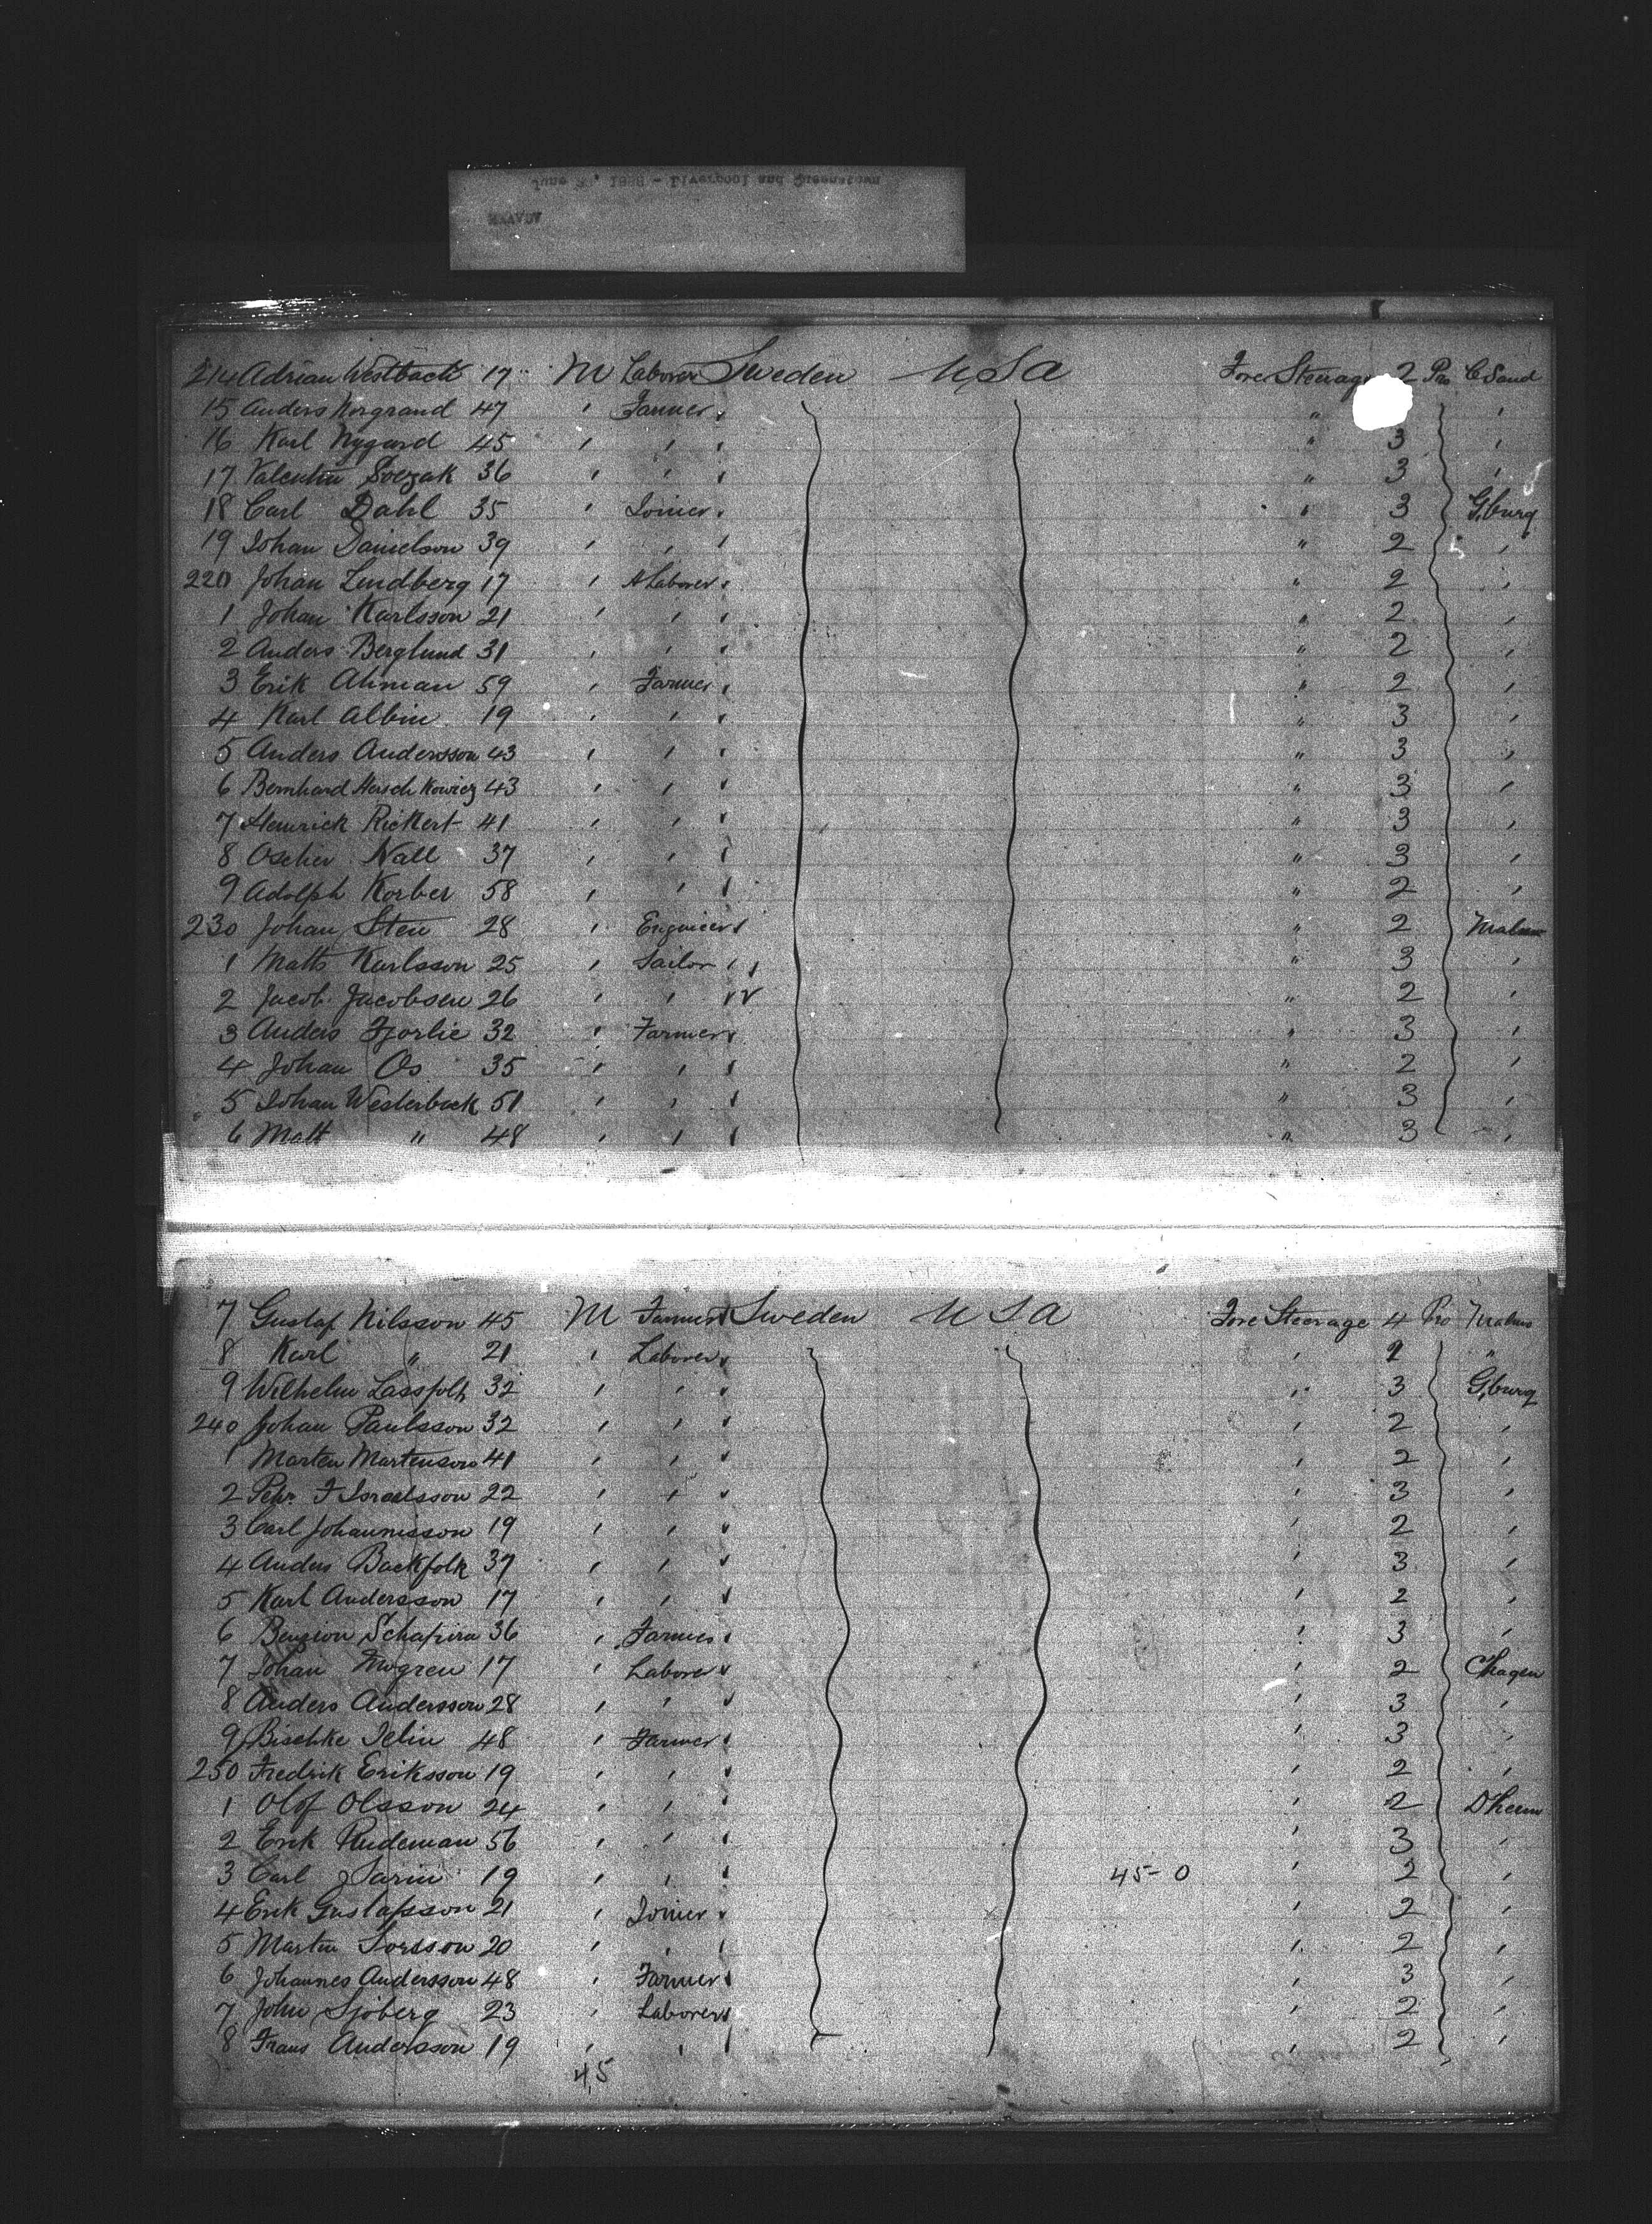 June 1888 - Liverpool and Queenstown
214 Adrian Westback 17 M Laborer Sweden U S A Fore Steerage 2 Pro C Sand
15 Anders Norgrand 47 " Farmer " " "
16 Karl Nygard 45 " " " " 3 "
17 Valentin 36 " " " " 3 "
18 Carl Dahl 35 " Joiner " " 3 G,burg
19 Johan Danielson 39 " " " " 2 "
220 Johan Lindberg 17 " Laborer " " 2 "
1 Johan Karlsson 21 " " " " 2 "
2 Anders Berglund 31 " " " " 2 "
3 Erik Ahman 59 " Farmer " " 2 "
4 Karl Albin 19 " " " " 3 "
5 Anders Andersson 43 " " " " 3 "
6 Bernhard Herschkowicz 43 " " " " 3 "
7 Henrick Rickert 41 " " " " 3 "
8 Oscher Nall 37 " " " " 3 "
9 Adolph Korber 58 " " " " 2 "
230 Johan Sten 28 " Engineer " " 2 Malmo
1 Matts Karlsson 25 " Sailor " " 3 "
2 Jacob Jacobsen 26 " " " " 2 "
3 Anders Fjorlie 32 " Farmer " " 3 "
4 Johan Os 35 " " " " 2 "
5 Johan Westerback 51 " " " " 3 "
6 Matt " 48 " " " " 3 "
7 Gustaf Nilsson 45 M Farmer Sweden U S A Fore Steerage 4 Pro Malmo
8 Karl " 21 " Laborer " " 2 "
9 Wilhelm Lassfolk 32 " " " " 3 G,burg
240 Johan Paulsson 32 " " " " 2 "
1 Marten Martenson 41 " " " " 2 "
2 Pehr F Israelsson 22 " " " " 3 "
3 Carl Johannisson 19 " " " " 2 "
4 Anders Backfolk 37 " " " " 3 "
5 Karl Andersson 17 " " " " 2 "
6 Benzion Schapira 36 " Farmer " " 3 "
7 Johan 17 " Laborer " " 2 Chagen
8 Anders Andersson 28 " " " " 3 "
9 Bischke Jelin 48 " Farmer " " 3 "
250 Fredrik Eriksson 19 " " " " 2 "
1 Olof Olsson 24 " " " " 2 Dheim
2 Erik Rudeman 56 " " " " 3 "
3 Carl J Sarin 19 " " " 45-0 " 2 "
4 Erik Gustafsson 21 " Joiner " " 2 "
5 Martin 20 " " " " 2 "
6 Johannes Andersson 48 " Farmer " " 3 "
7 John Sjoberg 23 " Laborer " " 2 "
8 Frans Andersson 19 " " " " 2 "
45